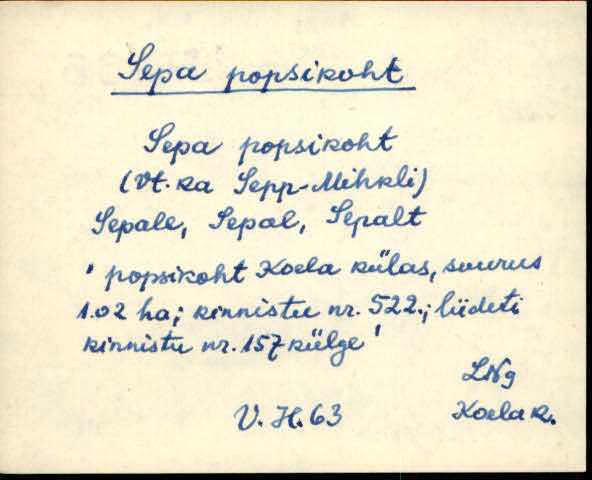 Sepa popsikoht
Sepa popsikoht
(Vt. ka Sepp-Mihkli)
Sepale, Sepal, Sepalt
' popsikoht Koela külas, suurus
1.02 ha; kinnistu nr. 522.; liideti
kinnistu nr. 157 külge '
LNg
V. H. 63
Koela k.